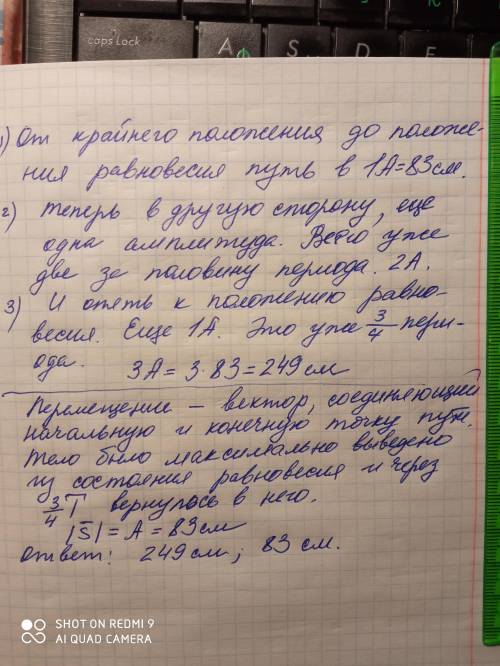 caps Lock
A Ф
S
D
F
1) От крайнего положения до положе-
ния равновесия путь в 1A=83см.
2) Теперь в другую сторону, еще
одна амплитуда. Всего уже
две за половину периода. 2А.
3) И опять к положению равно-
весия. Еще 1А. Это уже 3/4 пери-
ода. 3А = 3·83 = 249 см
Перемещение – вектор, соединяющий
начальную и конечную точку пути.
Тело было максимально выведено
из состояния равновесия и через
3/4 T вернулось в него.
|S̄| = A = 83 см
Ответ: 249 см; 83 см.
SHOT ON REDMI 9
AI QUAD CAMERA